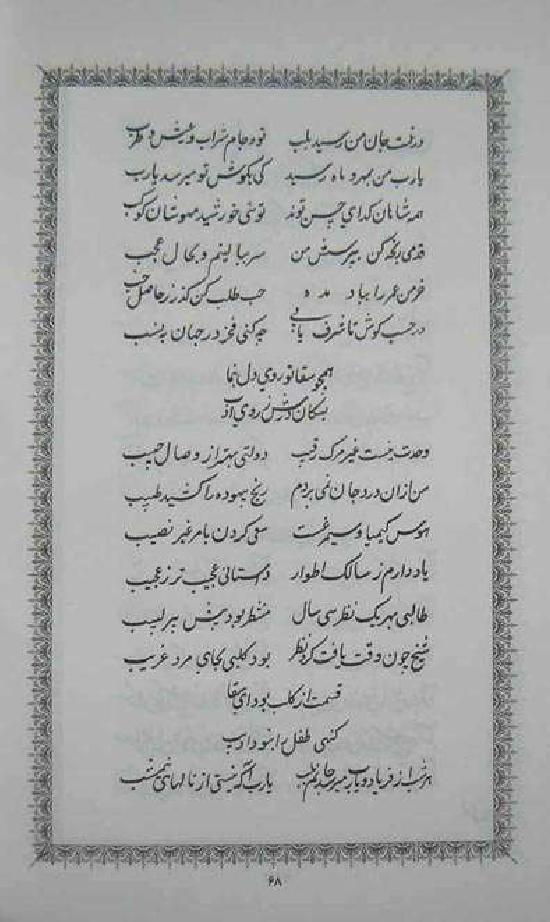 در فرقت جان من رسید بلب تو و جام شراب و عیش و طرب
یارب من بمهر و ماه رسید کی بگوش تو میرسد یارب
همه شاهان گدای حسن تواند توئی خورشید و مهوشان کوکب
قدمی رنجه کن بپرسش من سر ببالینم و بحال عجب
خرمن عمر را بباد مده حب طلب کن گذر ز حاصل حب
در حسب کوش تا شرف یابی چه کنی فخر در جهان بنسب
همچو سقا تو روی دل بنما
بسگان درش ز روی ادب
وحدت چیست غیر مرگ رقیب دولتی بهتر از وصال حبیب
من از آن درد جان نمی بردم رنج بیهوده را کشید طبیب
هوس کیمیا و سیمرغست سعی کردن بامر غیر نصیب
یاد دارم ز سالک اطوار داستانی عجیب تر ز عجیب
طالبی بهر یک نظر سی سال منتظر بود پیش پیر لبیب
شیخ چون وقت یافت کرد نظر بود کلبی بجای مرد غریب
قسمت از کلب بود ای سقا
گنهی طفل را نبود ادیب
هر شب از فریاد و یارب میرسد جانم بلب یارب آگه نیستی از نالهای نیمشب
۶۸